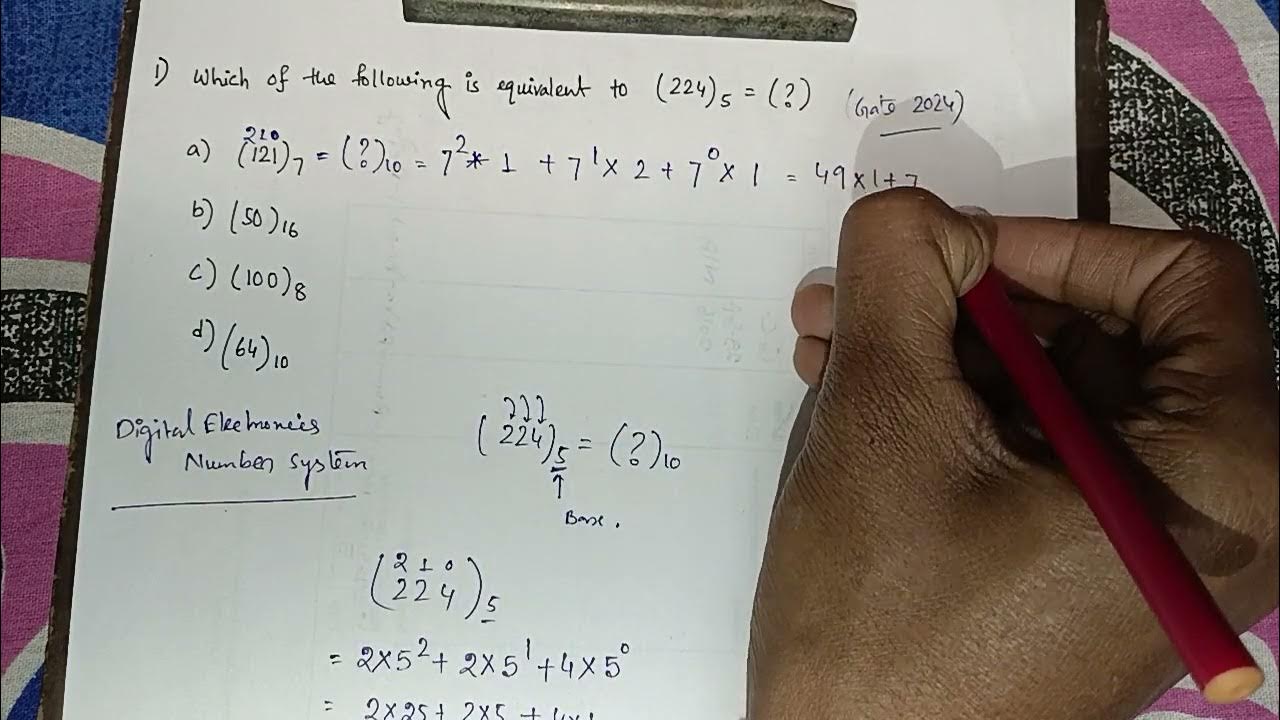 1) Which of the following is equivalent to (224)₅ = (?) (Gate 2024)
210
a) (121)₇ = (?)₁₀ = 7² * 1 + 7¹ × 2 + 7⁰ × 1 = 49 × 1 + 7
b) (50)₁₆
c) (100)₈
d) (64)₁₀
Digital Electronics
Number System
(224)₅ = (?)₁₀
↑
Base.
2 1 0
(224)₅
= 2×5² + 2×5¹ + 4×5⁰
= 2×25 + 2×5 + 4×1